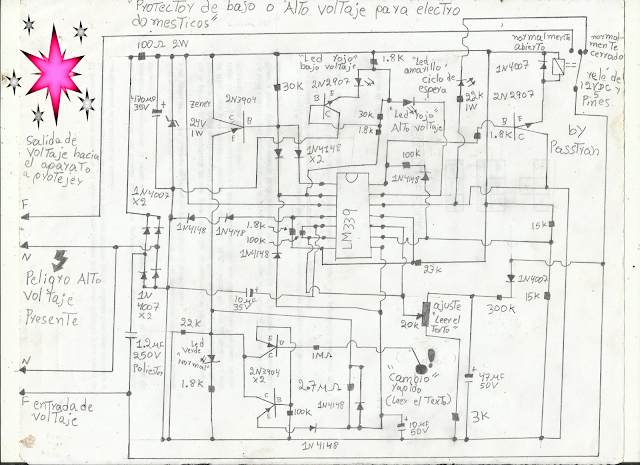 "Protector de bajo o Alto voltaje para electro
domesticos"
100Ω 2W
470µF
35V
Zener
24V
1W
2N3904
30K
"Led rojo"
bajo voltaje
2N2907
1.8K
"Led
amarillo"
ciclo de
espera
22K
1W
normalmente
abierto
normal-
mente
cerrado
1N4007
rele de
12VDC y
5
Pines.
2N2907
B
E
C
1.8K
by
Passtran
30K
1.8K
Led "rojo"
Alto voltaje
1N4148
X2
100K
1N4148
LM339
salida de
voltaje hacia
el aparato
a proteger
F
N
1N4007
X2
1N4148
1N4148
1.8K
100K
1N4148
15K
27K
1N4007
Peligro Alto
voltaje
Presente
1N
4007
X2
10µF
35V
20K
ajuste
"Leer el
Texto"
300K
15K
1.2µF
250V
Poliester
22K
Led
verde
"normal"
1.8K
2N3904
X2
1MΩ
"Cambio"
rapido
(Leer el Texto)
2.7MΩ
1N4148
100K
1N4148
10µF
50V
47µF
50V
3K
N
F entrada de
voltaje